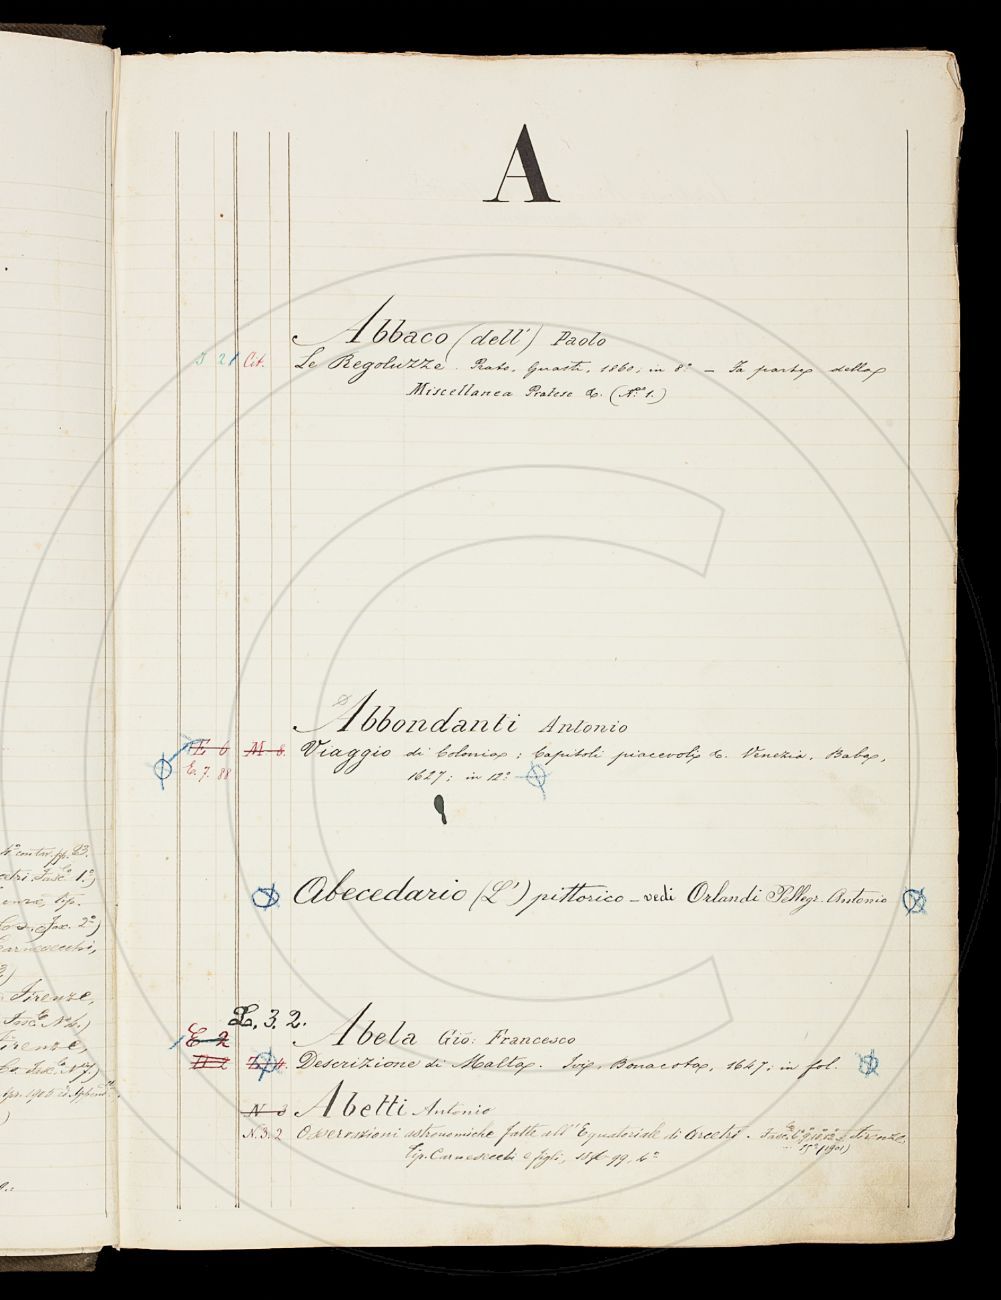 A
Abbaco (dell') Paolo
I 21 Cit. Le Regoluzze. Prato, Guasti, 1860; in 8° – Fa parte della
Miscellanea Pratese &. (N.° 1.)
Abbondanti Antonio
E 6 M 8 Viaggio di Colonia; Capitoli piacevoli &. Venezia, Baba,
E. 7. 88 1627; in 12°
Abecedario (L') pittorico – vedi Orlandi Pellegr. Antonio
L. 3. 2.
E 2 Abela Gio: Francesco
Descrizione di Malta. Ivi, Bonacota, 1647; in fol.
N 3 Abetti Antonio
N. 3. 2 Osservazioni astronomiche fatte all' Equatoriale di Arcetri. Firenze,
Tip. Carnesecchi e figli, 99, 4°
15° (1901)
4° con tav. pp. 23.
Fasc.° 1°)
tip.
2°)
Carnesecchi,
Firenze,
Fasc.° N° 4.)
Firenze,